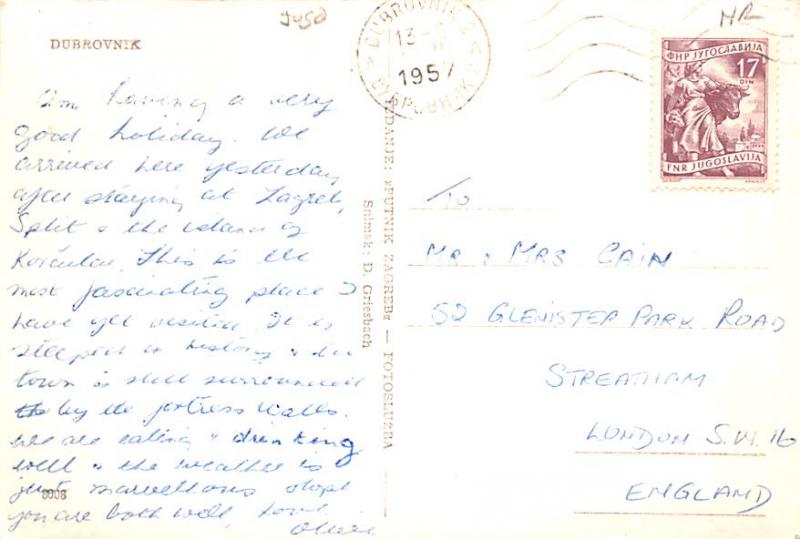 DUBROVNIK
Am having a very
good holiday. We
arrived here yesterday
after staying at Zagreb,
Split & the island of
Korčula. This is the
most fascinating place I
have yet visited. It is
steeped in history & the
town is still surrounded
by the fortress walls.
We are eating & drinking
well & the weather is
just marvellous. Hope
you are both well. Love
8008
IZDANJE: »PUTNIK ZAGREB« — FOTOSLUŽBA
Snimak: D. Griesbach
DUBROVNIK 2
13
1957
ДУБРОВНИК 2
HR
ФНР ЈУГОСЛАВИЈА
17
DIN
FNR JUGOSLAVIJA
To
MR & MRS CAIN
52 GLENISTER PARK ROAD
STREATHAM
LONDON S.W.16
ENGLAND